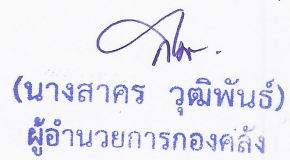 (นางสาคร วุฒิพันธ์)
ผู้อำนวยการกองคลัง